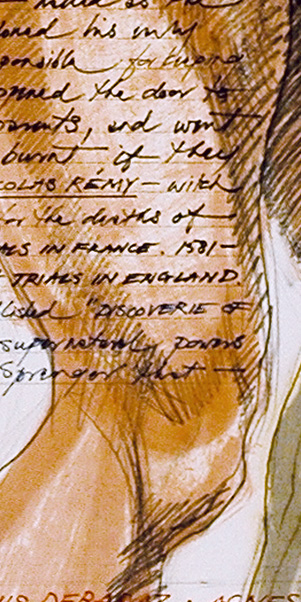 maid as the
his only
ponsible for
opened the door to
, and went
burnt if they
COLAS RÉMY — with
for the deaths of
ALS IN FRANCE. 1581 —
TRIALS IN ENGLAND
lished "DISCOVERIE OF
supernatural powers
Sprenger that —
AGNES